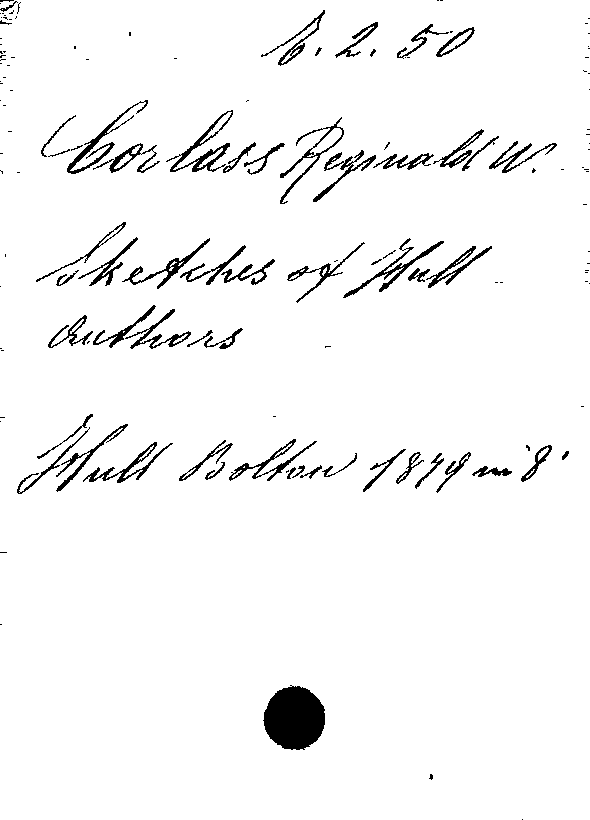 E. 2. 50
Corlass Reginald W.
Sketches of Hull
Authors
Hull Bolton 1879 in 8°